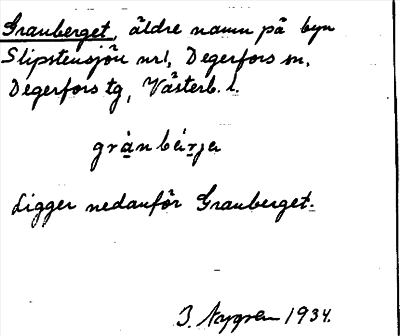 Granberget, äldre namn på byn
Slipstensjön nr1, Degerfors sn,
Degerfors tg, Västerb. l.
grànbèrja
Ligger nedanför Granberget.
J. Nygren 1934.